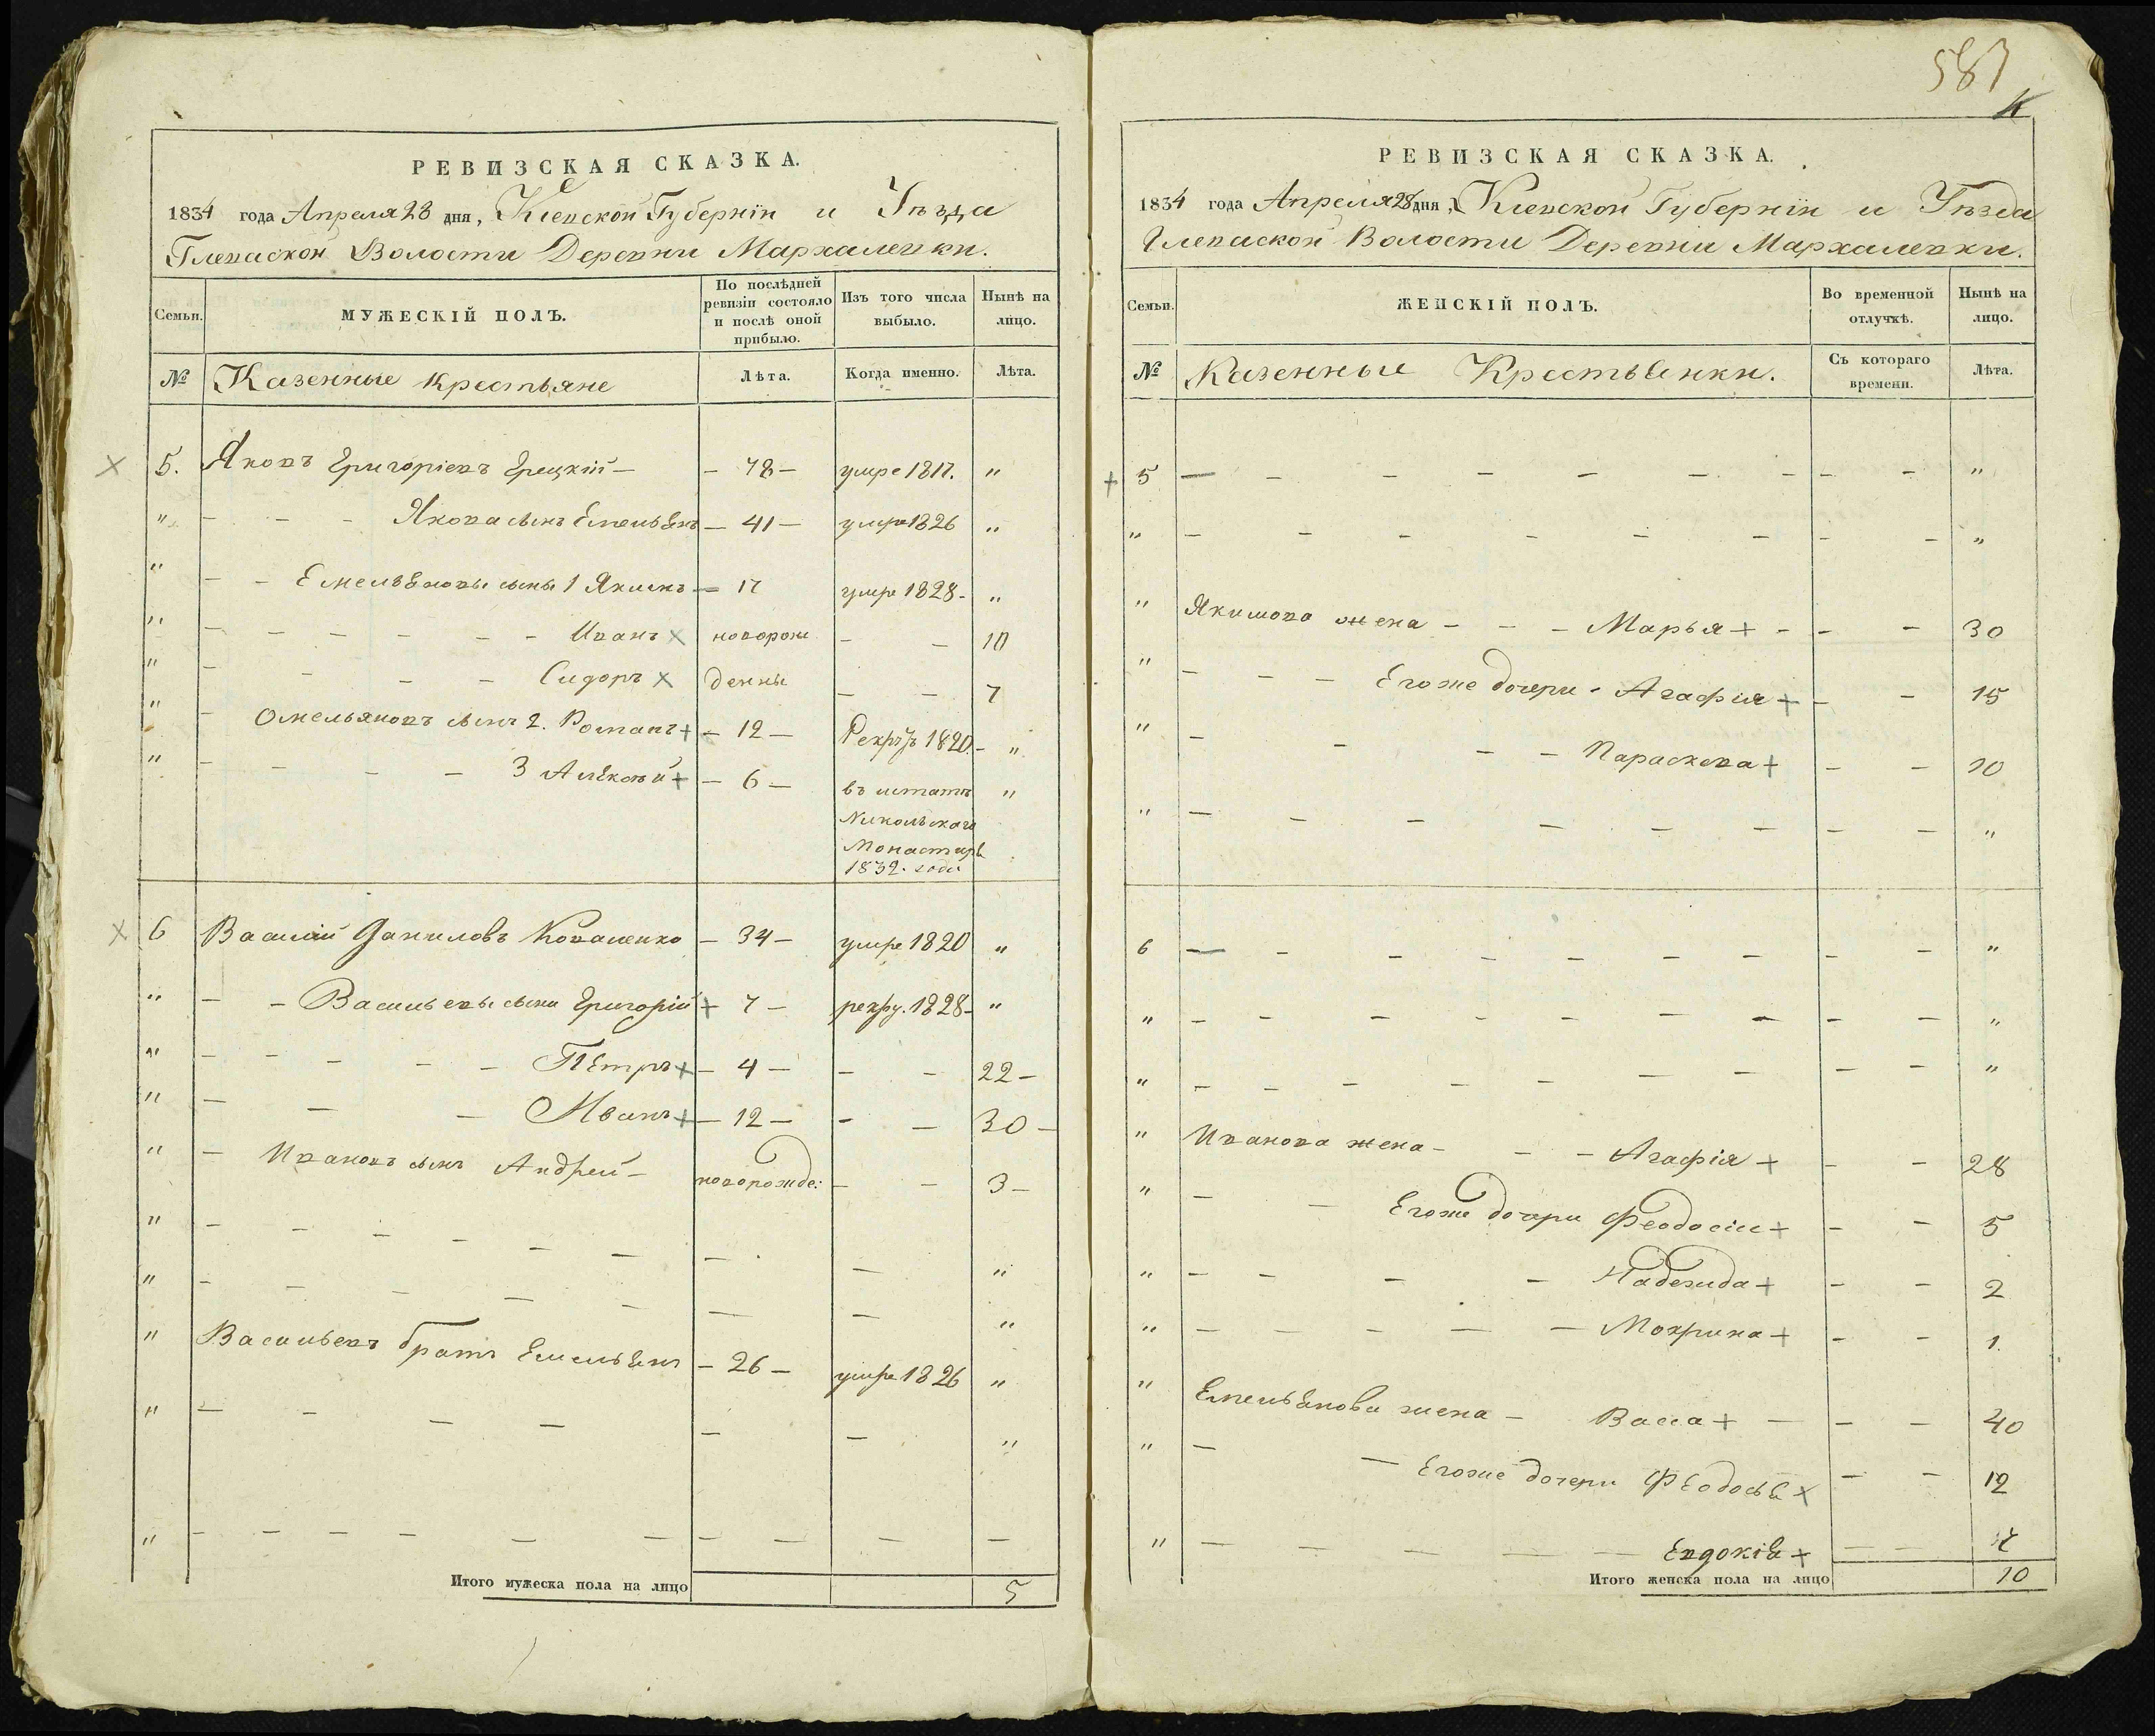 РЕВИЗСКАЯ СКАЗКА.
1834 года Апреля 28 дня, Кіевской Губерніи и Уѣзда
Глеваской Волости Деревни Мархалевки.
Семьи. МУЖЕСКІЙ ПОЛЪ. По послѣдней ревизіи состояло и послѣ оной прибыло. Изъ того числа выбыло. Нынѣ на лицо.
№ Казенные Крестьяне Лѣта. Когда именно. Лѣта.
5. Яковъ Григоріевъ Грецкій — — 78 — умре 1817. "
" — — — Якова сынъ Емельянъ — 41 — умре 1826 "
" — — Емельяновы сыны 1 Якимъ — 17 умре 1828 - "
" — — — — — — Иванъ × новорож — — 10
" — — — — Сидоръ × денны — — 7
" — Омельяновъ сынъ 2. Романъ + — 12 — Рекрутъ 1820. - "
" — — — — 3 Алексѣй + — 6 — въ штатѣ "
Никольскаго
Монастыря
1832. года
6 Василій Даниловъ Коваленко — 34 — умре 1820 "
" — — Васильевы сыны Григорій + 7 — рекру. 1828 - "
" — — — — — Пётръ + — 4 — — — 22 —
" — — — Иванъ + — 12 — — — 30 —
" — Ивановъ сынъ Андрей — новорожде: — — 3 —
" — — — — — — — . — "
" — — — — — — — "
" Васильевъ братъ Емельянъ — 26 — умре 1826 "
" — — — — — — "
" — — — — — — — — — —
Итого мужеска пола на лицо 5
587
К
РЕВИЗСКАЯ СКАЗКА.
1834 года Апреля 28 дня, Кіевской Губерніи и Уѣзда
Глеваской Волости Деревни Мархалевки.
Семьи. ЖЕНСКІЙ ПОЛЪ. Во временной отлучкѣ. Нынѣ на лицо.
№ Казенные Крестьянки. Съ котораго времени. Лѣта.
5 — — — — — — — — — "
" — — — — — — — — "
" Якимова жена — — — Марья + - — — 30
" — — — Егоже дочери - Агафія + — — 15
" — — — — Параскева + — — 10
" — — — — — — — — "
6 — — — — — — — — — "
" — — — — — — — — — "
" — — — — — — — — — "
" Иванова жена — — — Агафія + — — 28
" — — Егоже дочери Феодосія + — — 5
" — — — — Надежда + — — 2
" — — — — — Мокрина + — — 1.
" Емельянова жена — Васса + — — — 40
" — — Егоже дочери Феодосья × — — 12
" — — — — — Евдокія + — — 7
Итого женска пола на лицо 10